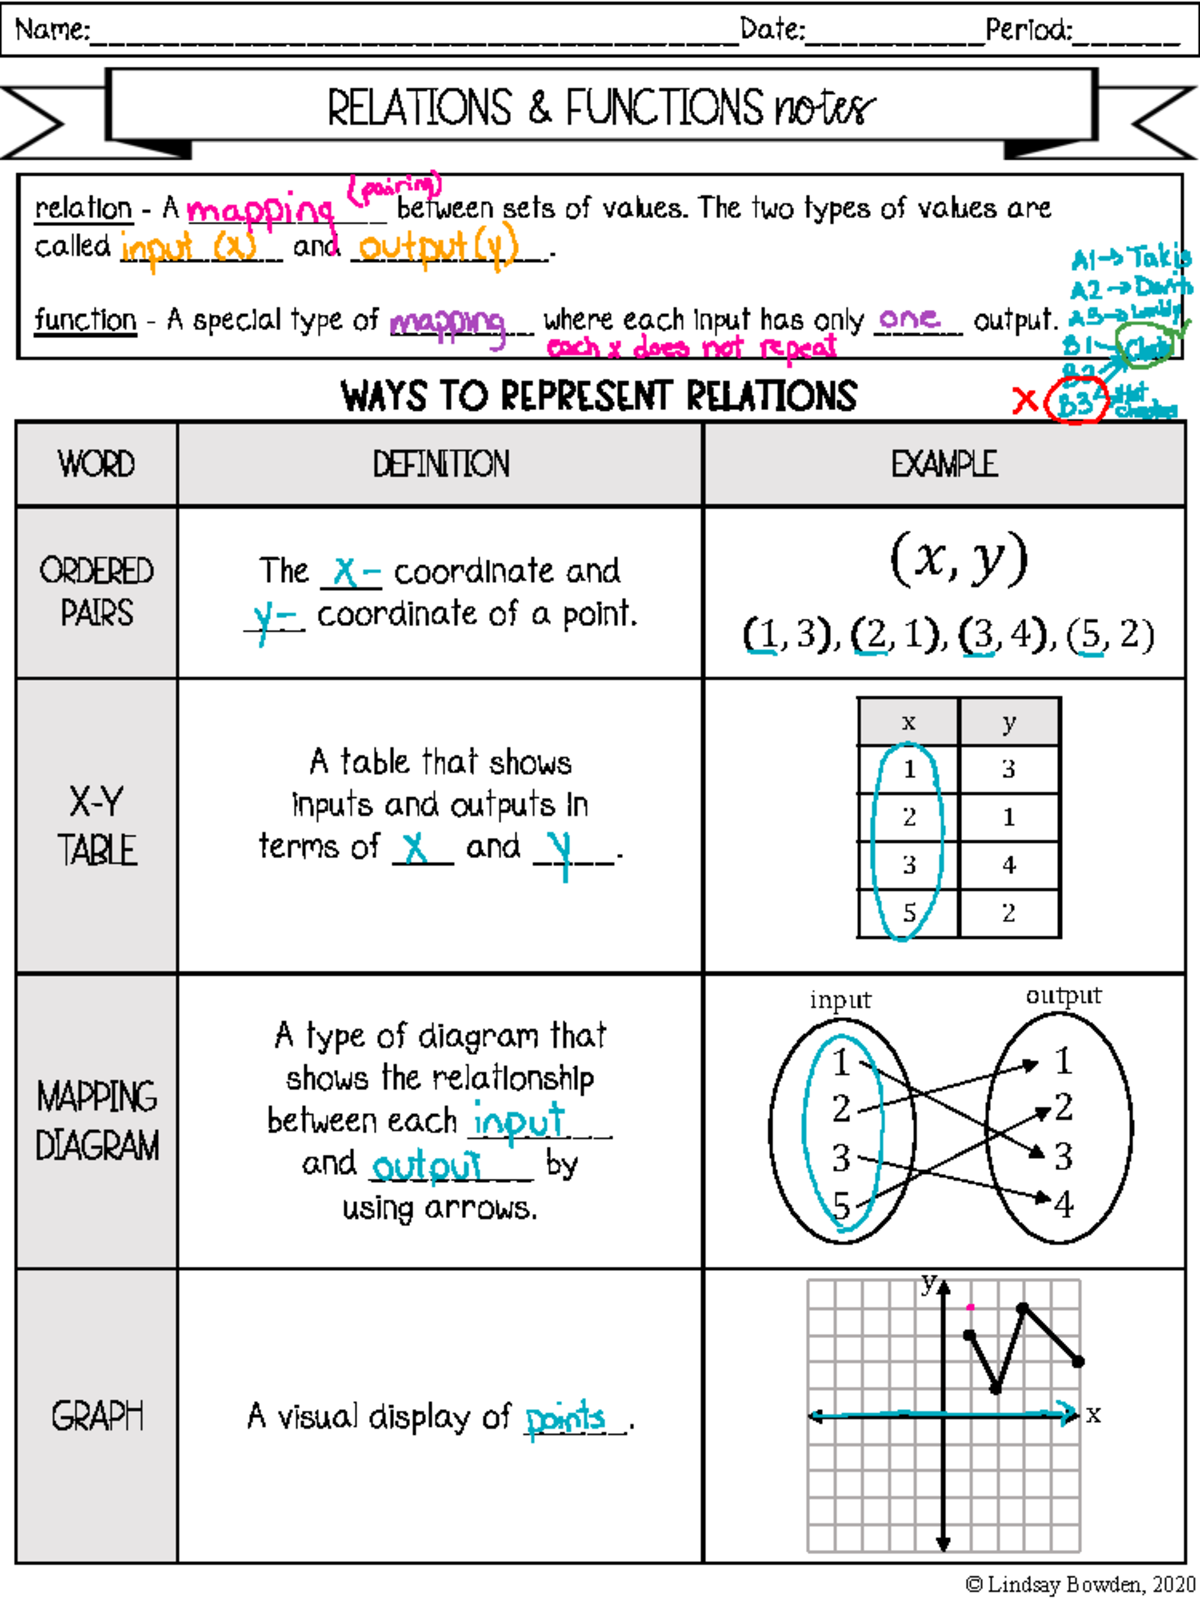 Name:____ Date:____ Period:____
RELATIONS & FUNCTIONS notes
relation - A mapping (pairing) between sets of values. The two types of values are
called input (x) and output (y).
function - A special type of mapping where each input has only one output.
each x does not repeat
A1→Takis
A2→
A3→
B1→
B2→
X B3→Hot
WAYS TO REPRESENT RELATIONS
WORD DEFINITION EXAMPLE
ORDERED
PAIRS
The x- coordinate and
y- coordinate of a point.
(x, y)
(1, 3), (2, 1), (3, 4), (5, 2)
X-Y
TABLE
A table that shows
inputs and outputs in
terms of x and y.
x y
1 3
2 1
3 4
5 2
MAPPING
DIAGRAM
A type of diagram that
shows the relationship
between each input
and output by
using arrows.
input output
1 1
2 2
3 3
5 4
GRAPH
A visual display of points.
y
x
© Lindsay Bowden, 2020